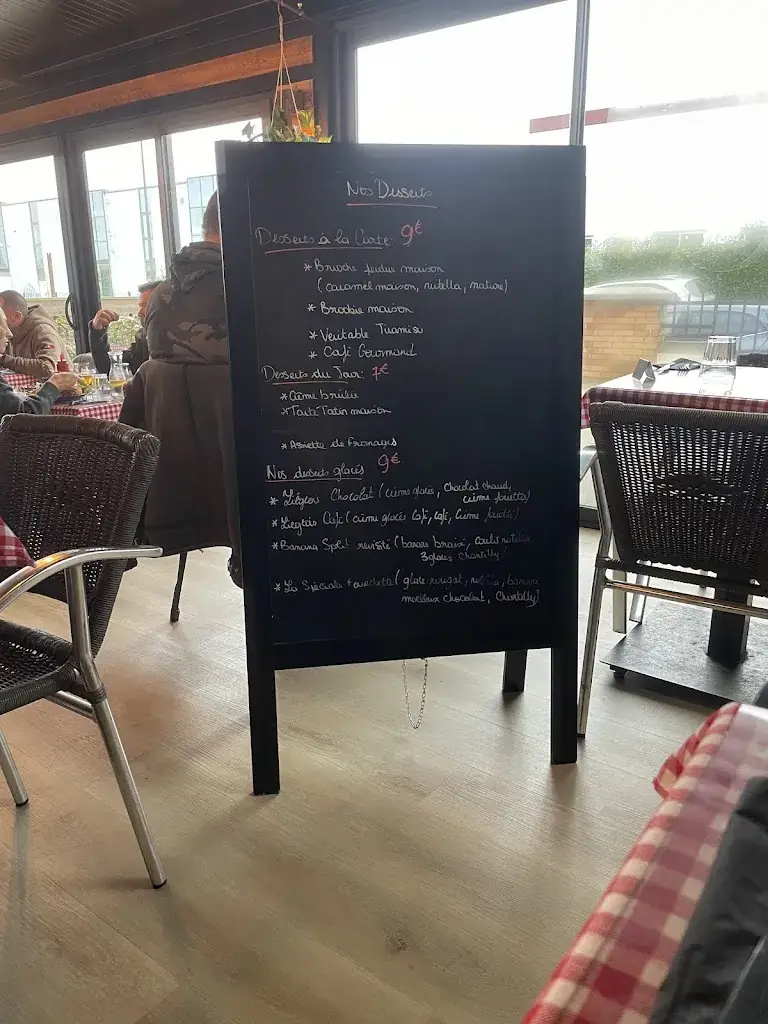 Nos Desserts
Desserts à la Carte: 9€
* Brioche perdue maison
(caramel maison, nutella, nature)
* Brookie maison
* Véritable Tiramisu
* Café Gourmand
Desserts du Jour: 7€
* Crème brulée
* Tarte Tatin maison
* Assiette de fromages
Nos desserts glacés 9€
* Liégeois Chocolat (crème glacée, chocolat chaud,
crème fouettée)
* Liegeois Café (crème glacée café, café, crème fouettée)
* Banana Split revisité (banane braisé, coulis nutella
3 glaces chantilly)
* La Spéciale (glace nougat, nutella, banane
moelleux chocolat, Chantilly)